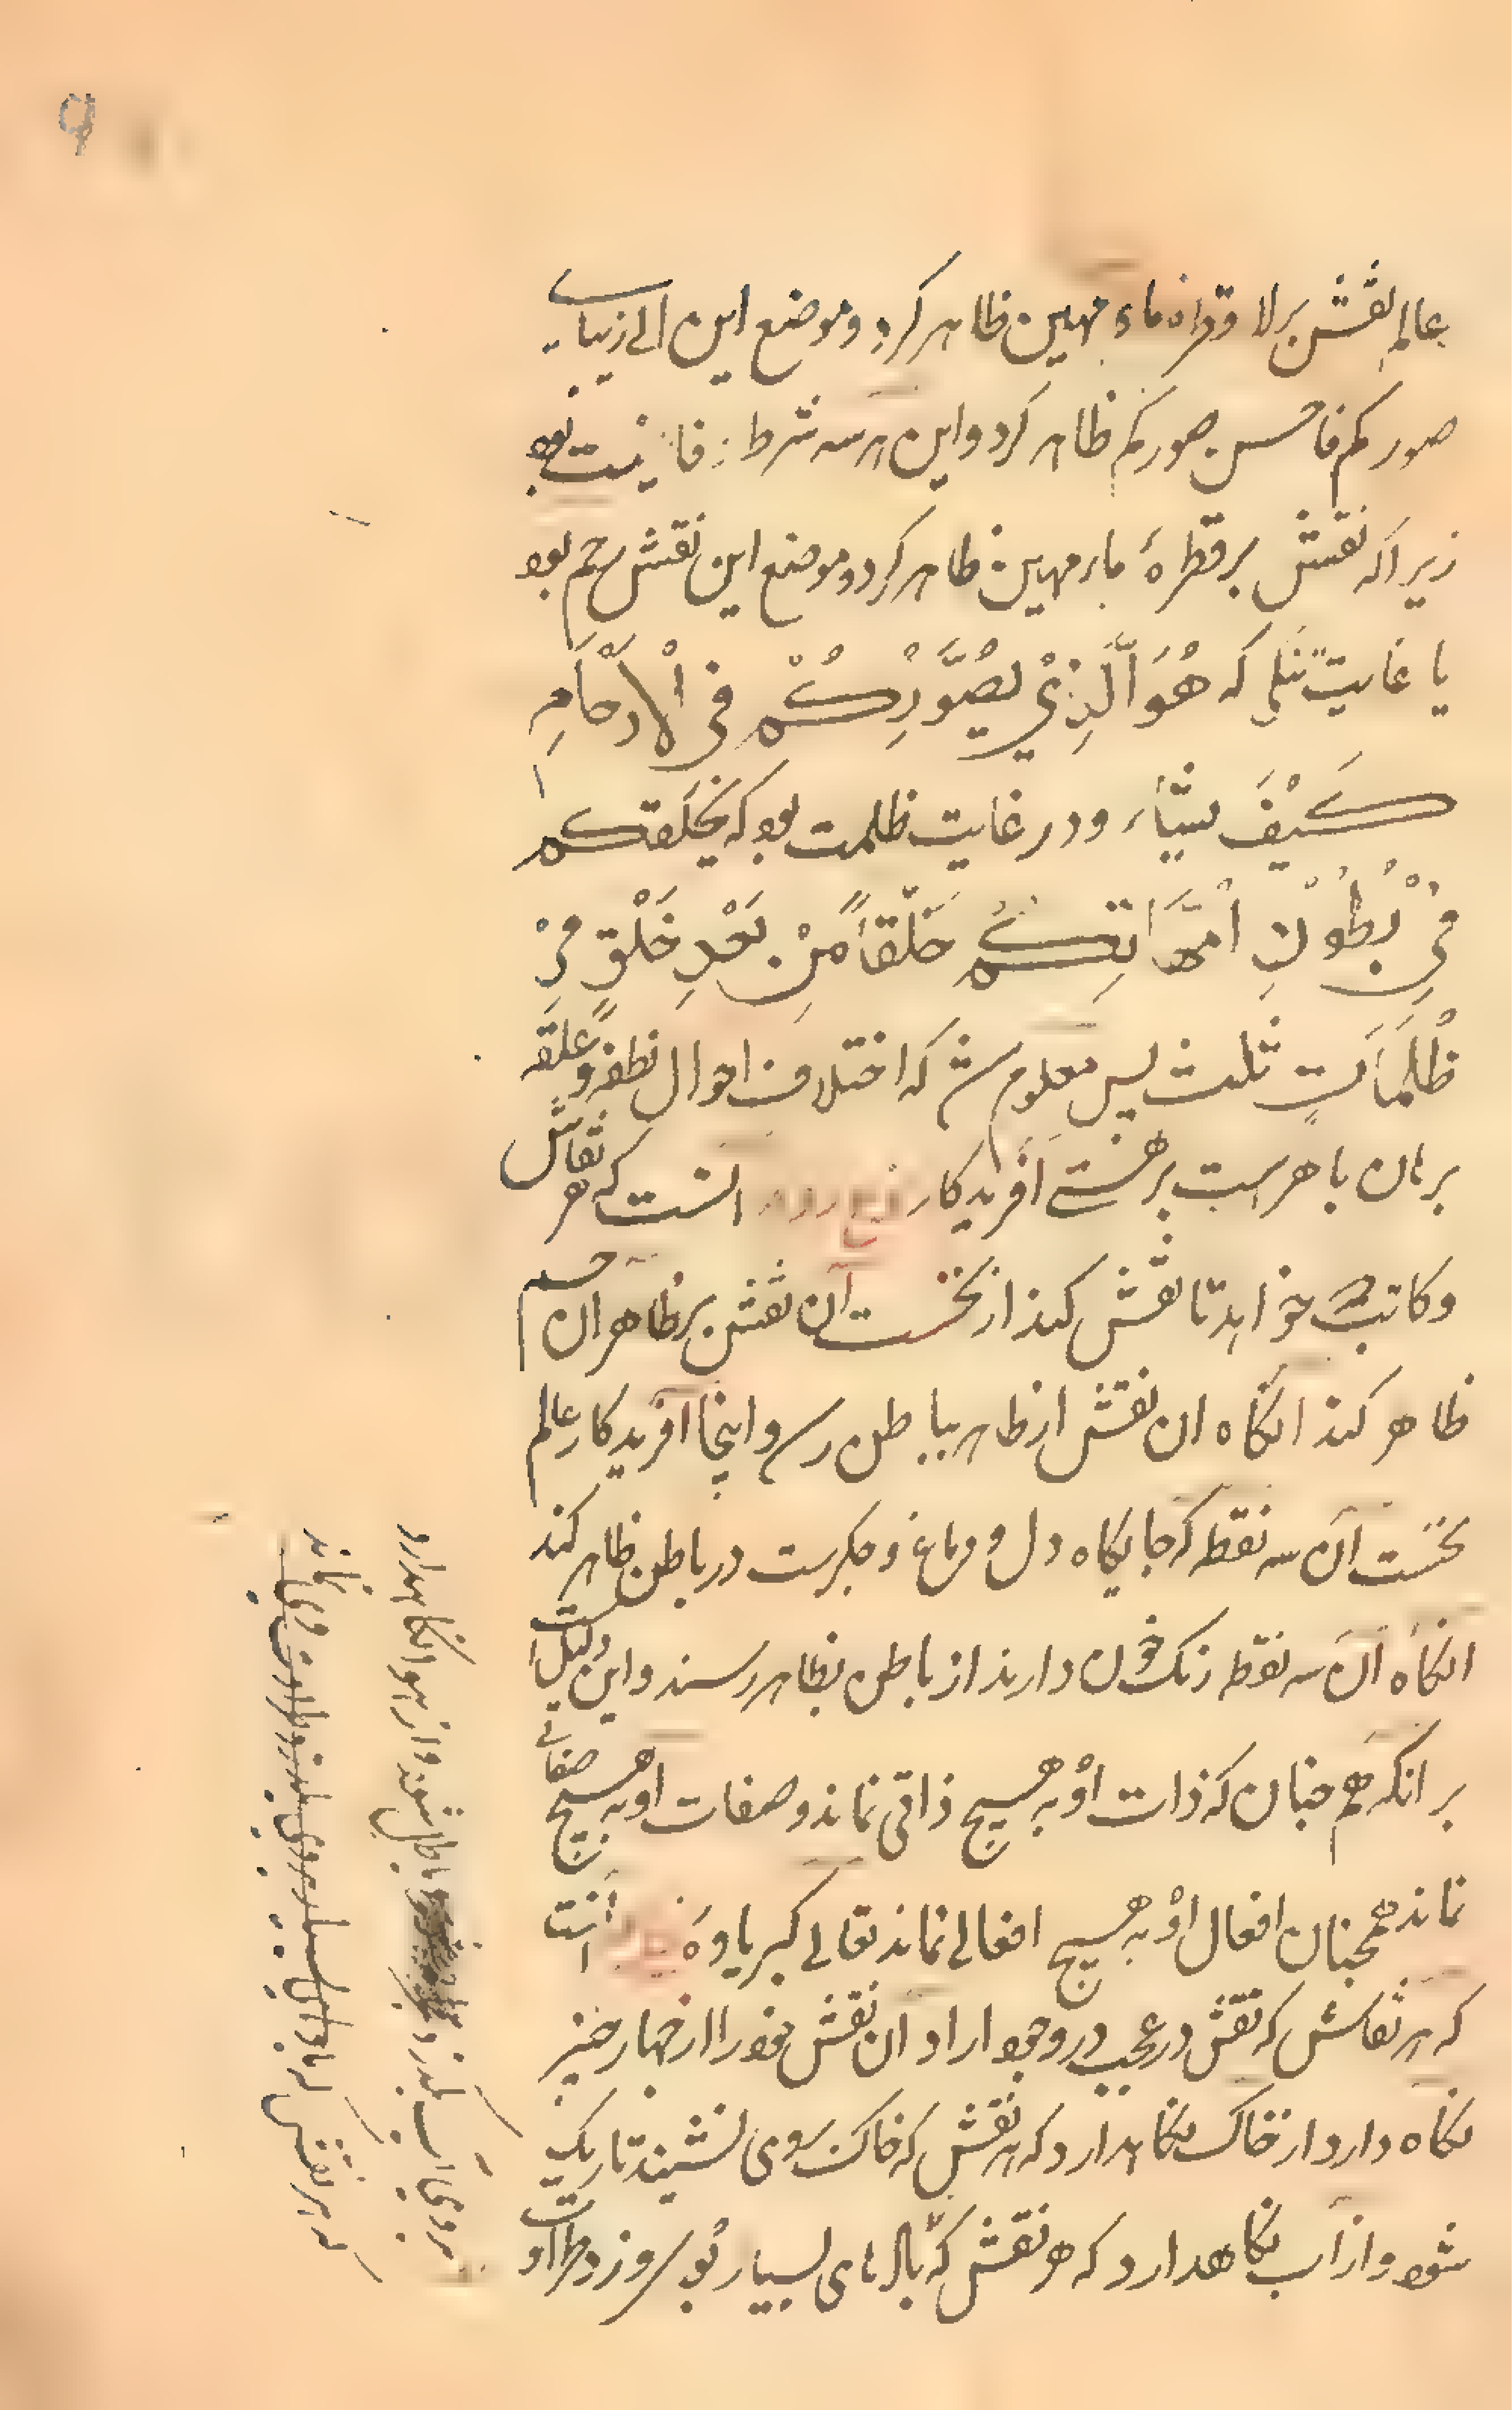 ۹
عالم نقش برلا وقطره ماء مهین ظاهر کرد و موضع این الی زیبایی
صورکم فاحسن صورکم ظاهر کرد و این هر سه شرط فا نیست بود
زیرا که نقش بر قطرهٔ ماء مهین ظاهر کرد و موضع این نقش رحم بود
یا غایت تنگی که هُوَ الَّذِیْ یُصَوِّرُکُمْ فِی الْاَرْحَامِ
کَیْفَ یشآء و در غایت ظلمت بود که یخلقکم
فِیْ بُطُوْنِ اُمَّهَاتِکُمْ خَلْقًا مِّنْ بَعْدِ خَلْقٍ فِیْ
ظُلُمَاتٍ ثلث پس معلوم شد که اختلاف احوال نطفه و علقه
برهان باهرست بر هستی آفریدکار انست که هر نقاش
و کاتب خواهد تا نقش کند از نخست آن نقش بر ظاهر ان جسم
ظاهر کند انکاه ان نقش از ظاهر بباطن رسد و اینجا آفریدکار عالم
نخست آن سه نقطه که جایکاه دل و دماغ و جکرست در باطن ظاهر کند
انکاه آن سه نقطه رنک خون دارند از باطن بظاهر رسند و این دلیل است
بر انکه هم چنان که ذات او به هیچ ذاتی نماند و صفات او به هیچ صفاتی
نماند همچنان افعال او به هیچ افعالی نماند تعالی کبریاوه آنست
که هر نقاش که نقش در عجب در وجود اراد آن نقش خود را از چهار چیز
نکاه دارد از خاک نکاهدارد که هر نقش که خاک بروی نشیند تاریک
شود و از آب نکاهدارد که هر نقش که بالهای بسیار بروز و طراوت او
بروی آب بکذرد باطل شود و از هوا نکاهدارد
که هر نقش که بادهای بسیار بروی بکذرد طراوت وی نماند